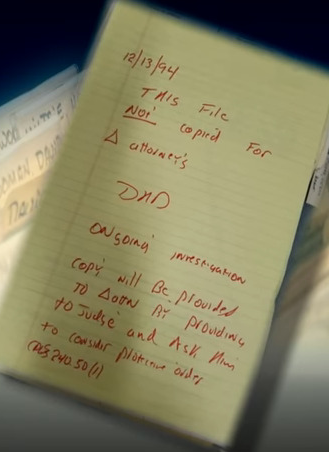 12/13/94
This File
Not copied For
Δ attorneys
DAD
ONgoing investigation
copy will Be provided
TO Δ by providing
to Judge and Ask Him
to consider protective order
240.50(1)